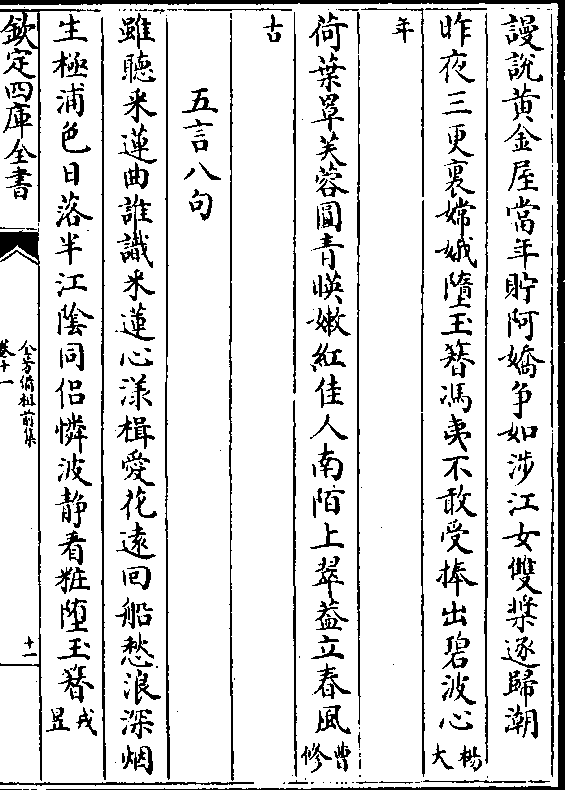 謾說黃金屋當年貯阿嬌争如涉江女雙槳逐歸潮
昨夜三更裏嫦娥墮玉簪馮夷不敢受捧出碧波心楊大
年
荷葉罩芙蓉圓青暎嫩紅佳人南陌上翠蓋立春風曹修
古
五言八句
雖聽采蓮曲誰識采蓮心漾楫愛花逺回船愁浪深烟
生極浦色日落半江陰同侣憐波靜看粧墮玉簪戎昱
欽定四庫全書
全芳備祖前集
卷十一
十一